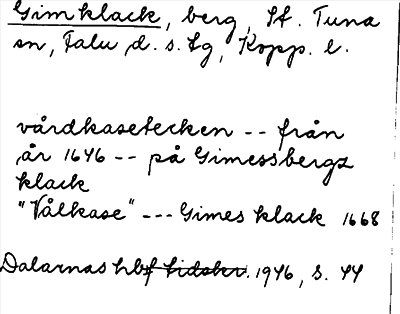 Gimklack, berg, St. Tuna
sn, Falu d. s. lg, Kopp. l.
vårdkasetecken -- från
år 1646 -- på Gimessbergz
klack
"Vålkase" --- Gimes klack 1668
Dalarnas hbf tidskr. 1946, s. 44